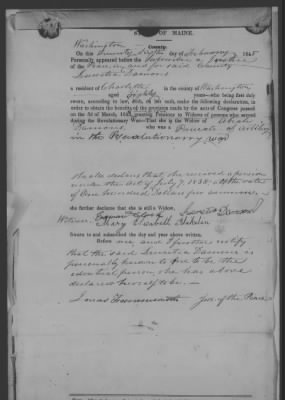 STATE OF MAINE.
Washington County.
On this Twenty day of February 1845
Personally appeared before the Subscriber a Justice
of the Peace in and for said County
Lucretia Damons
a resident of Charlotte in the county of Washington
aged Eighty years—who being first duly
sworn, according to law, doth, on her oath, make the following declaration, in
order to obtain the benefits of the provision made by the acts of Congress passed
on the 3d of March, granting Pensions to Widows of persons who served
during the Revolutionary War—That she is the Widow of Abiah
Damons, who was a Private of artillery
in the Revolutionary war
she also declares that she received a pension
under the Act of July 7, 1838, at the rate
of One hundred dollars per annum
she further declares that she is still a Widow.
Witness Lucretia Damons
Mary Elizabeth
Sworn to and subscribed the day and year above written.
Before me, and I further certify
that the said Lucretia Damons is
personally known to me to be the
identical person she has above
declared herself to be.
Jonas Farnsworth Jus. of the Peace